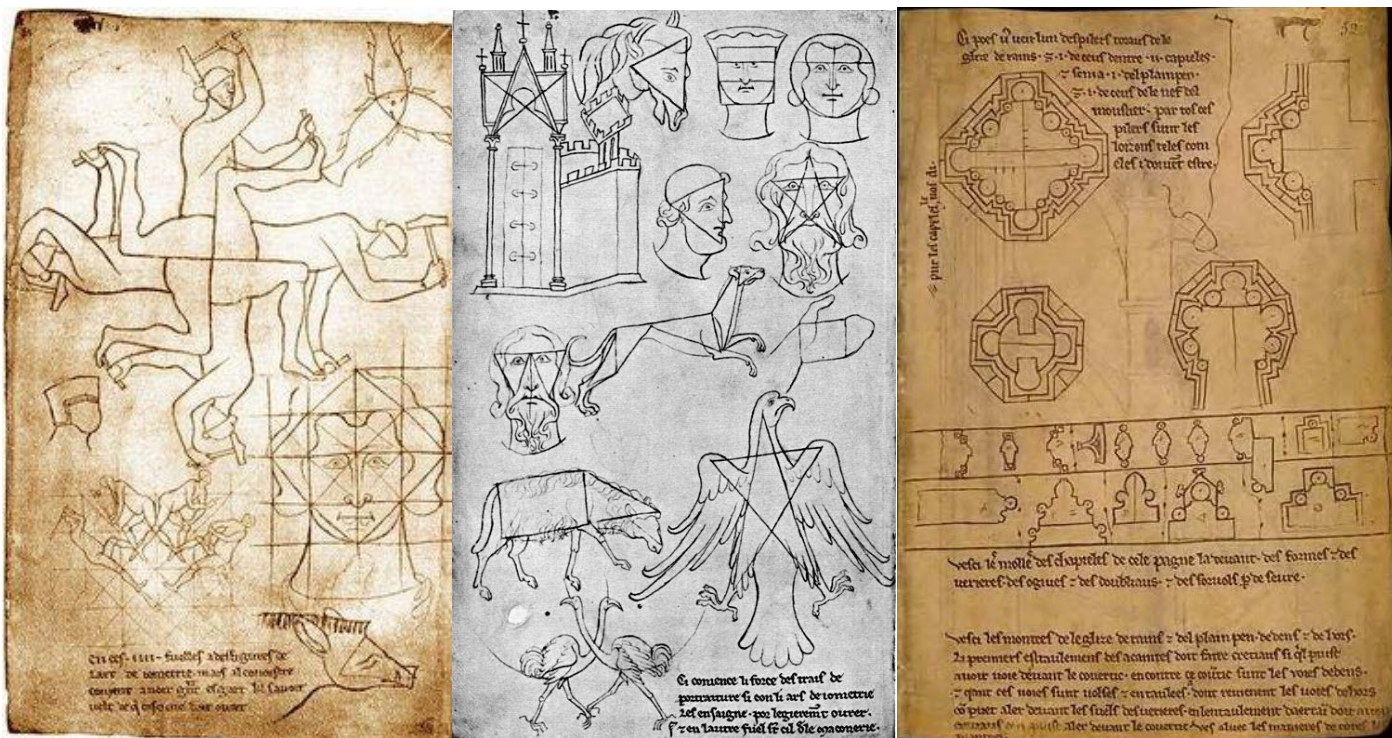 En ces .iiii. fuelles a des figures de
lart de iometrie mais al conoistre
covient avoir grant esgart ki savoir
velt de q cascune doit ovrer
Ci comence li force des trais de
portraiture si con li ars de iometrie
les ensaigne. por legierement ovrer.
7 en lautre fuel st cil dle maconerie.
32
Ci poes veir lun des pilers toraus de le
glize de rains. 7 .i. de ceus dentre .ii. capieles.
7 sen ia .i. del plain pen.
7 .i. de ceus de le nef del
moustier. par tos ces
pilers sunt les
loizons teles com
eles i doivent estre.
vesci les molles des chapieles de cele pagne la devant. des formes 7 des
verieres. des ogives 7 des doubliaus. 7 des sorvols p de seure.
vesci les montees de le glize de rains 7 del plain pen. dedens 7 dehors.
Li premiers estaulemens des acaintes doit faire cretiaus si ql puist
avoir voie devant le covertic. encontre ce covertic sunt les voies dedens.
7 qant ces voies sunt volses 7 entaulees. dont revienent les voies dehors
con puet aler devant les suels des verieres. en lentaulement daerrain doit
aler devant le coverture. ves aluec les manieres de totes